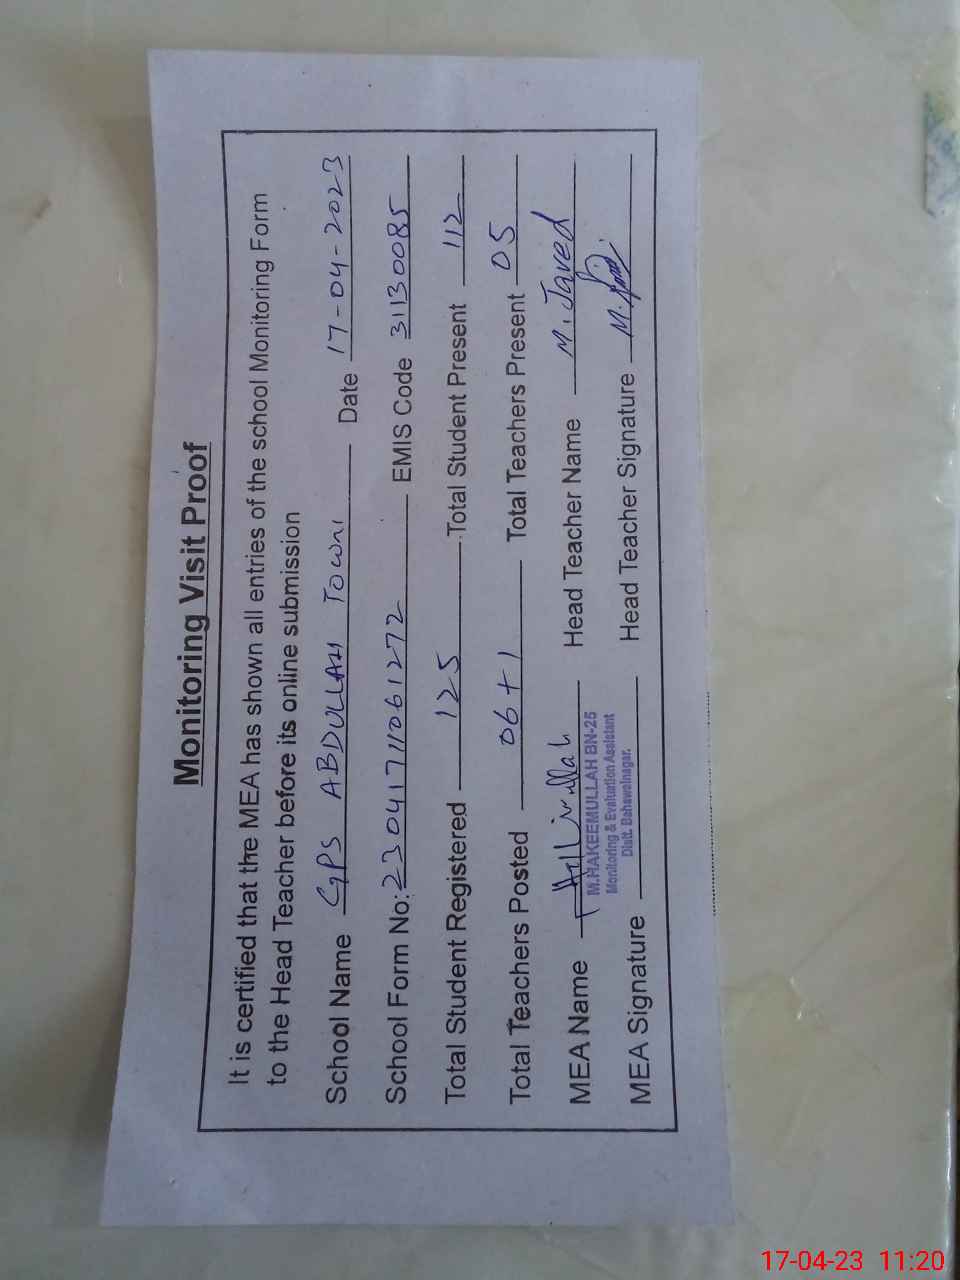 Monitoring Visit Proof
It is certified that the MEA has shown all entries of the school Monitoring Form
to the Head Teacher before its online submission
School Name GPS ABDULLAH Town Date 17-04-2023
School Form No: 23041711061272 EMIS Code 31130085
Total Student Registered 125 Total Student Present 112
Total Teachers Posted 06+1 Total Teachers Present 05
MEA Name Head Teacher Name M. Javed
M.HAKEEMULLAH BN-25
Monitoring & Evaluation Assistant
Distt. Bahawalnagar.
MEA Signature Head Teacher Signature M.
17-04-23 11:20